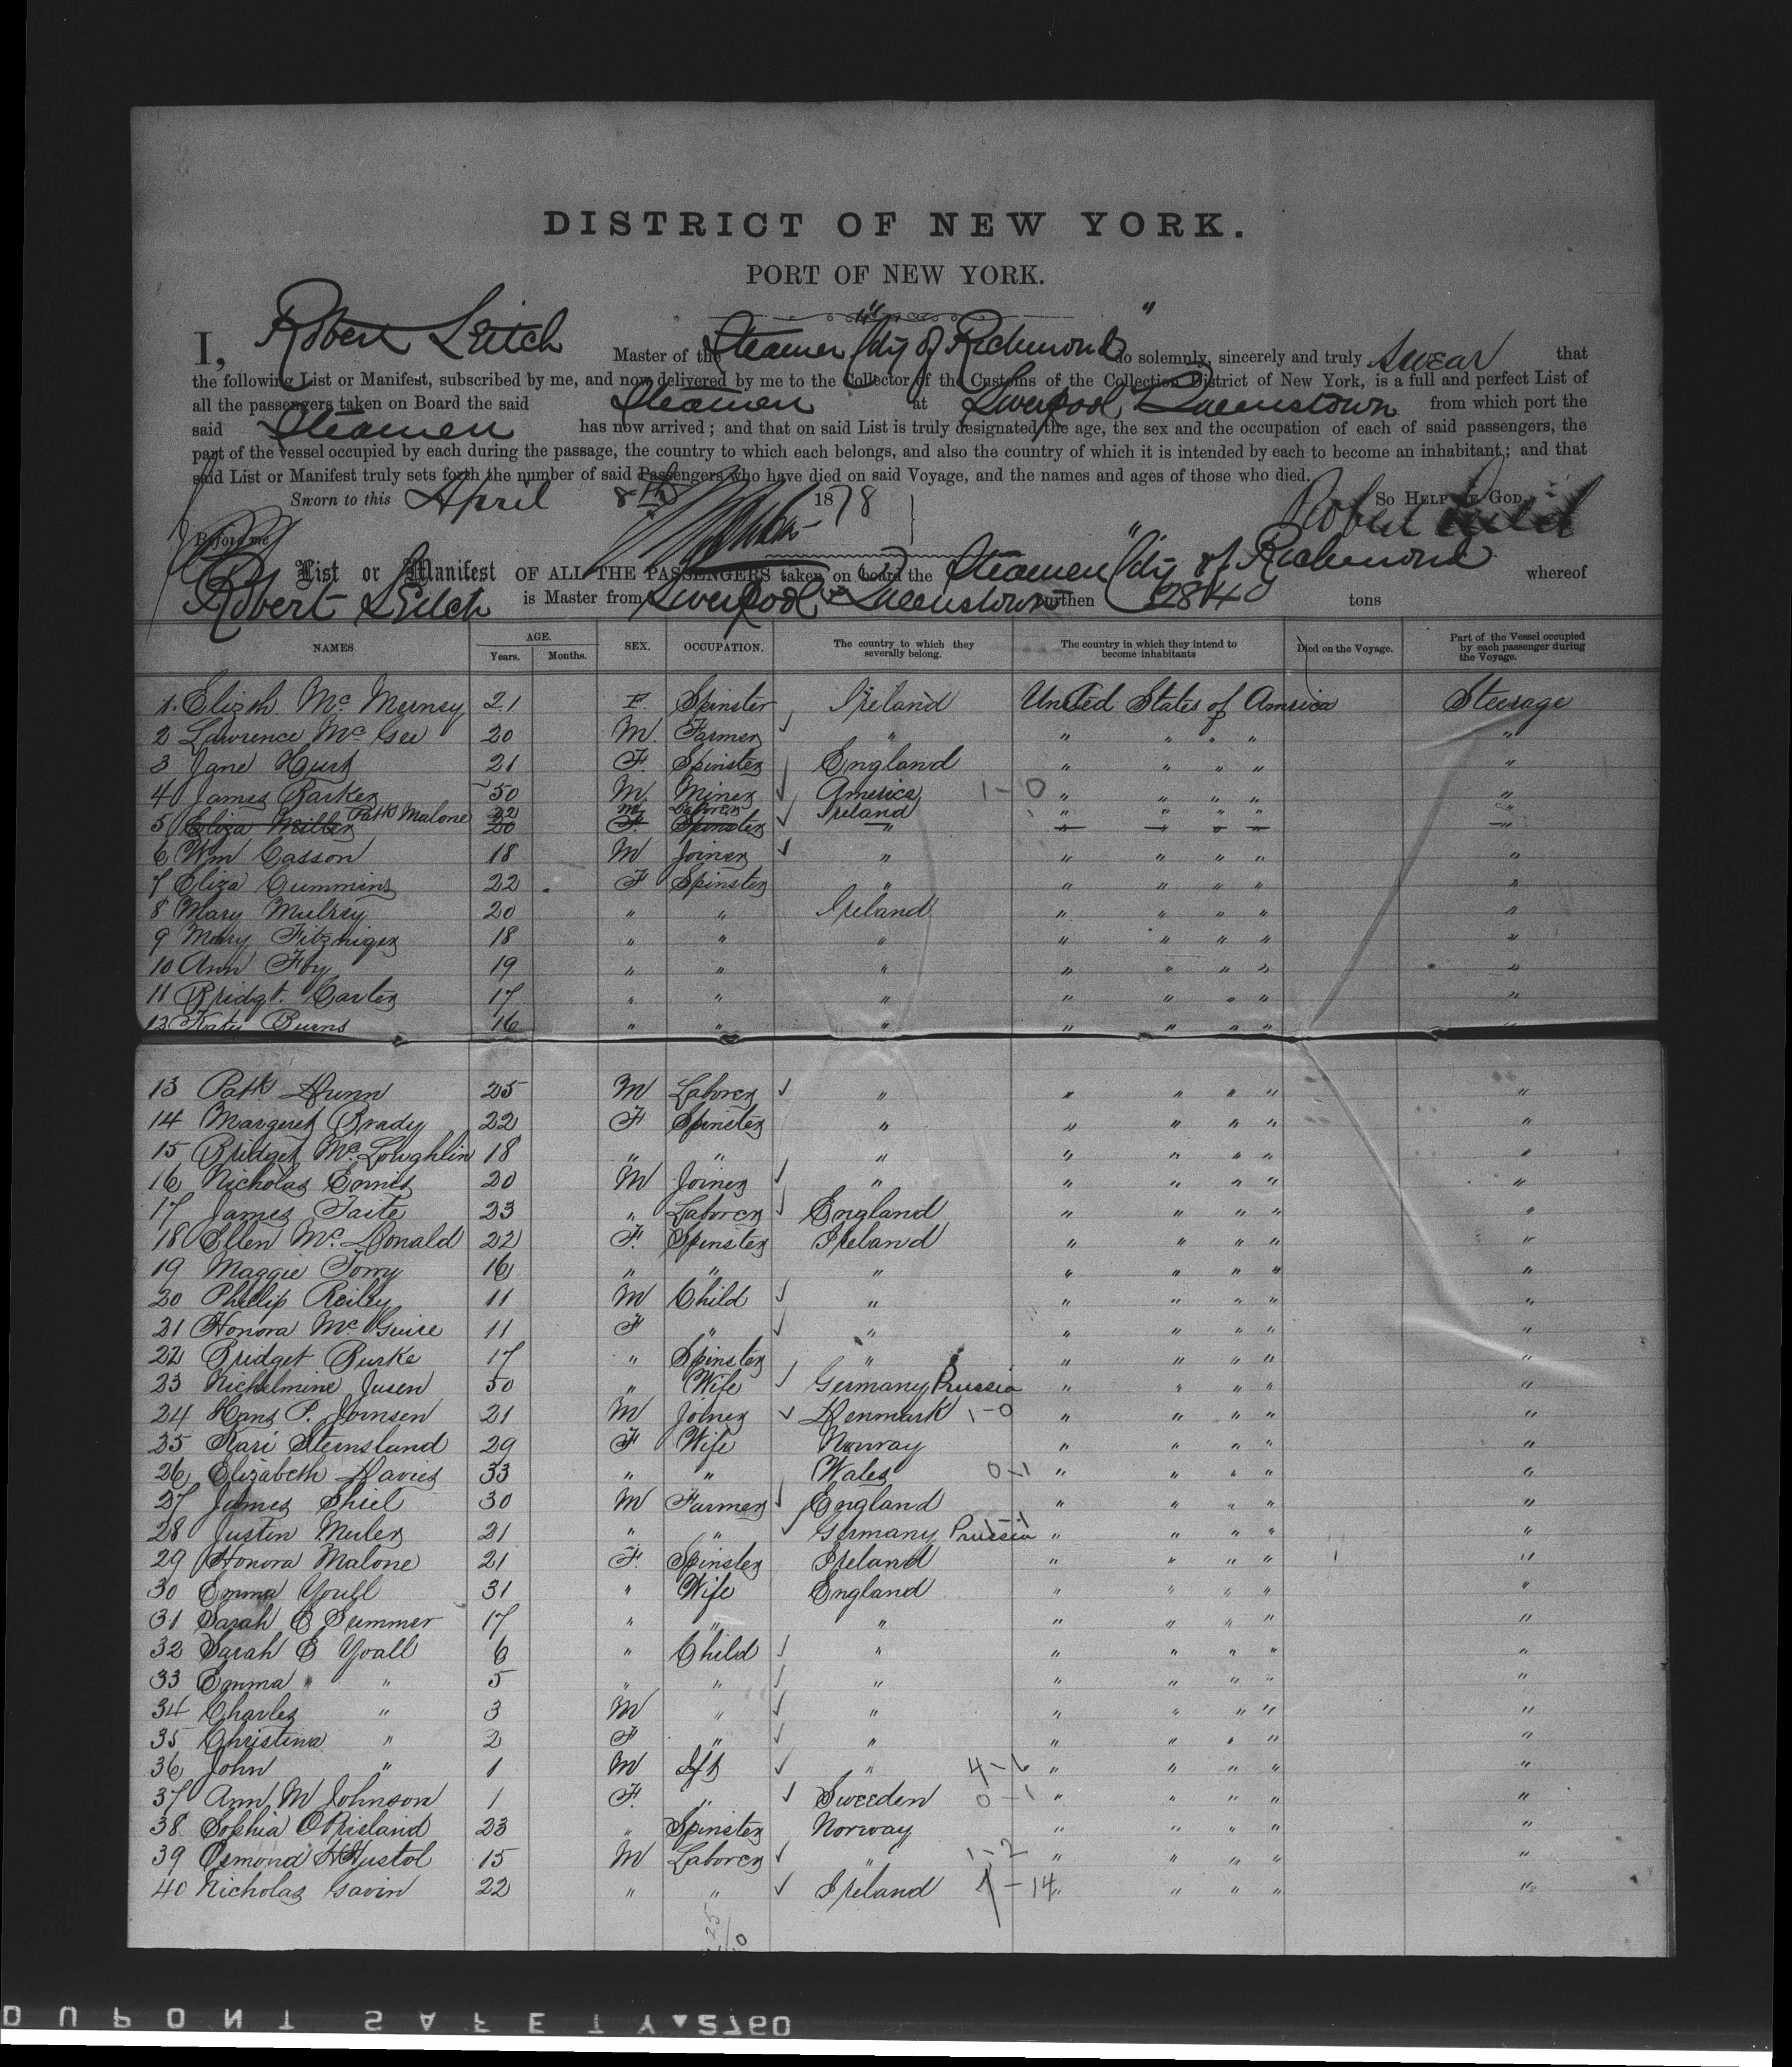 DISTRICT OF NEW YORK.
PORT OF NEW YORK.
I, Robert Leitch Master of the Steamer "City of Richmond" do solemnly, sincerely and truly swear that
the following List or Manifest, subscribed by me, and now delivered by me to the Collector of the Customs of the Collection District of New York, is a full and perfect List of
all the passengers taken on Board the said Steamer at Liverpool & Queenstown from which port the
said Steamer has now arrived; and that on said List is truly designated the age, the sex and the occupation of each of said passengers, the
part of the vessel occupied by each during the passage, the country to which each belongs, and also the country of which it is intended by each to become an inhabitant; and that
said List or Manifest truly sets forth the number of said Passengers who have died on said Voyage, and the names and ages of those who died.
Sworn to this April 8th 1878 So HELP ME GOD
Before me Robert Leitch
List or Manifest OF ALL THE PASSENGERS taken on board the Steamer "City of Richmond whereof
Robert Leitch is Master from Liverpool & Queenstown burthen 2840 tons
NAMES AGE. Years. Months. SEX. OCCUPATION. The country to which they severally belong. The country in which they intend to become inhabitants Died on the Voyage. Part of the Vessel occupied by each passenger during the Voyage.
1. Elizth Mc Merney 21 F. Spinster Ireland United States of America Steerage
2 Lawrence Mc Gee 20 M. Farmer " " " " " "
3 Jane Hurst 21 F. Spinster England " " " " "
4 James Barker 50 M. Miner America 1-0 " " " " "
Patk Malone 22 M Laborer Ireland " " " " "
5 Eliza Miller 20 F. Spinster " " " " " "
6 Wm Casson 18 M Joiner " " " " " "
7 Eliza Cummins 22 F Spinster " " " " " "
8 Mary Mulrey 20 " " Ireland " " " " "
9 Mary Fitzniger 18 " " " " " " " "
10 Ann Foy 19 " " " " " " " "
11 Bridgt. Carter 17 " " " " " " " "
12 Kate Burns 16 " " " " " " " "
13 Patk Dunn 25 M Laborer " " " " " "
14 Margeret Brady 22 F Spinster " " " " " "
15 Bridget Mc Loughlin 18 " " " " " " " "
16 Nicholas Ennis 20 M Joiner " " " " " "
17 James Taite 23 " Laborer England " " " " "
18 Ellen Mc Donald 22 F. Spinster Ireland " " " " "
19 Maggie Torry 16 " " " " " " " "
20 Phillip Reiley 11 M Child " " " " " "
21 Honora Mc Guire 11 F " " " " " " "
22 Bridget Burke 17 " Spinster " " " " " "
23 Nichelmine Jusen 50 " Wife Germany Prussia " " " " "
24 Hans P. Joinsen 21 M Joiner Denmark 1-0 " " " " "
25 Kari Sternsland 29 F Wife Norway " " " " "
26 Elizabeth Davies 33 " " Wales 0-1 " " " " "
27 James Shiel 30 M Farmer England " " " " "
28 Justin Muler 21 " " Germany Prussia " " " " "
29 Honora Malone 21 F. Spinster Ireland " " " " "
30 Emma Youll 31 " Wife England " " " " "
31 Sarah E Summer 17 " " " " " " " "
32 Sarah E Yoall 6 " Child " " " " " "
33 Emma " 5 " " " " " " " "
34 Charles " 3 M " " " " " " "
35 Christina " 2 F " " " " " " "
36 John " 1 M Ift " 4-6 " " " " "
37 Ann M Johnson 1 F. " Sweeden 0-1 " " " " "
38 Sophia ORisland 23 " Spinster Norway " " " " "
39 Osmond Hustol 15 M Laborer " 1-2 " " " " "
40 Nicholas Gavin 22 " " Ireland -14 " " " " "
25
DUPONT SAFETY 2760